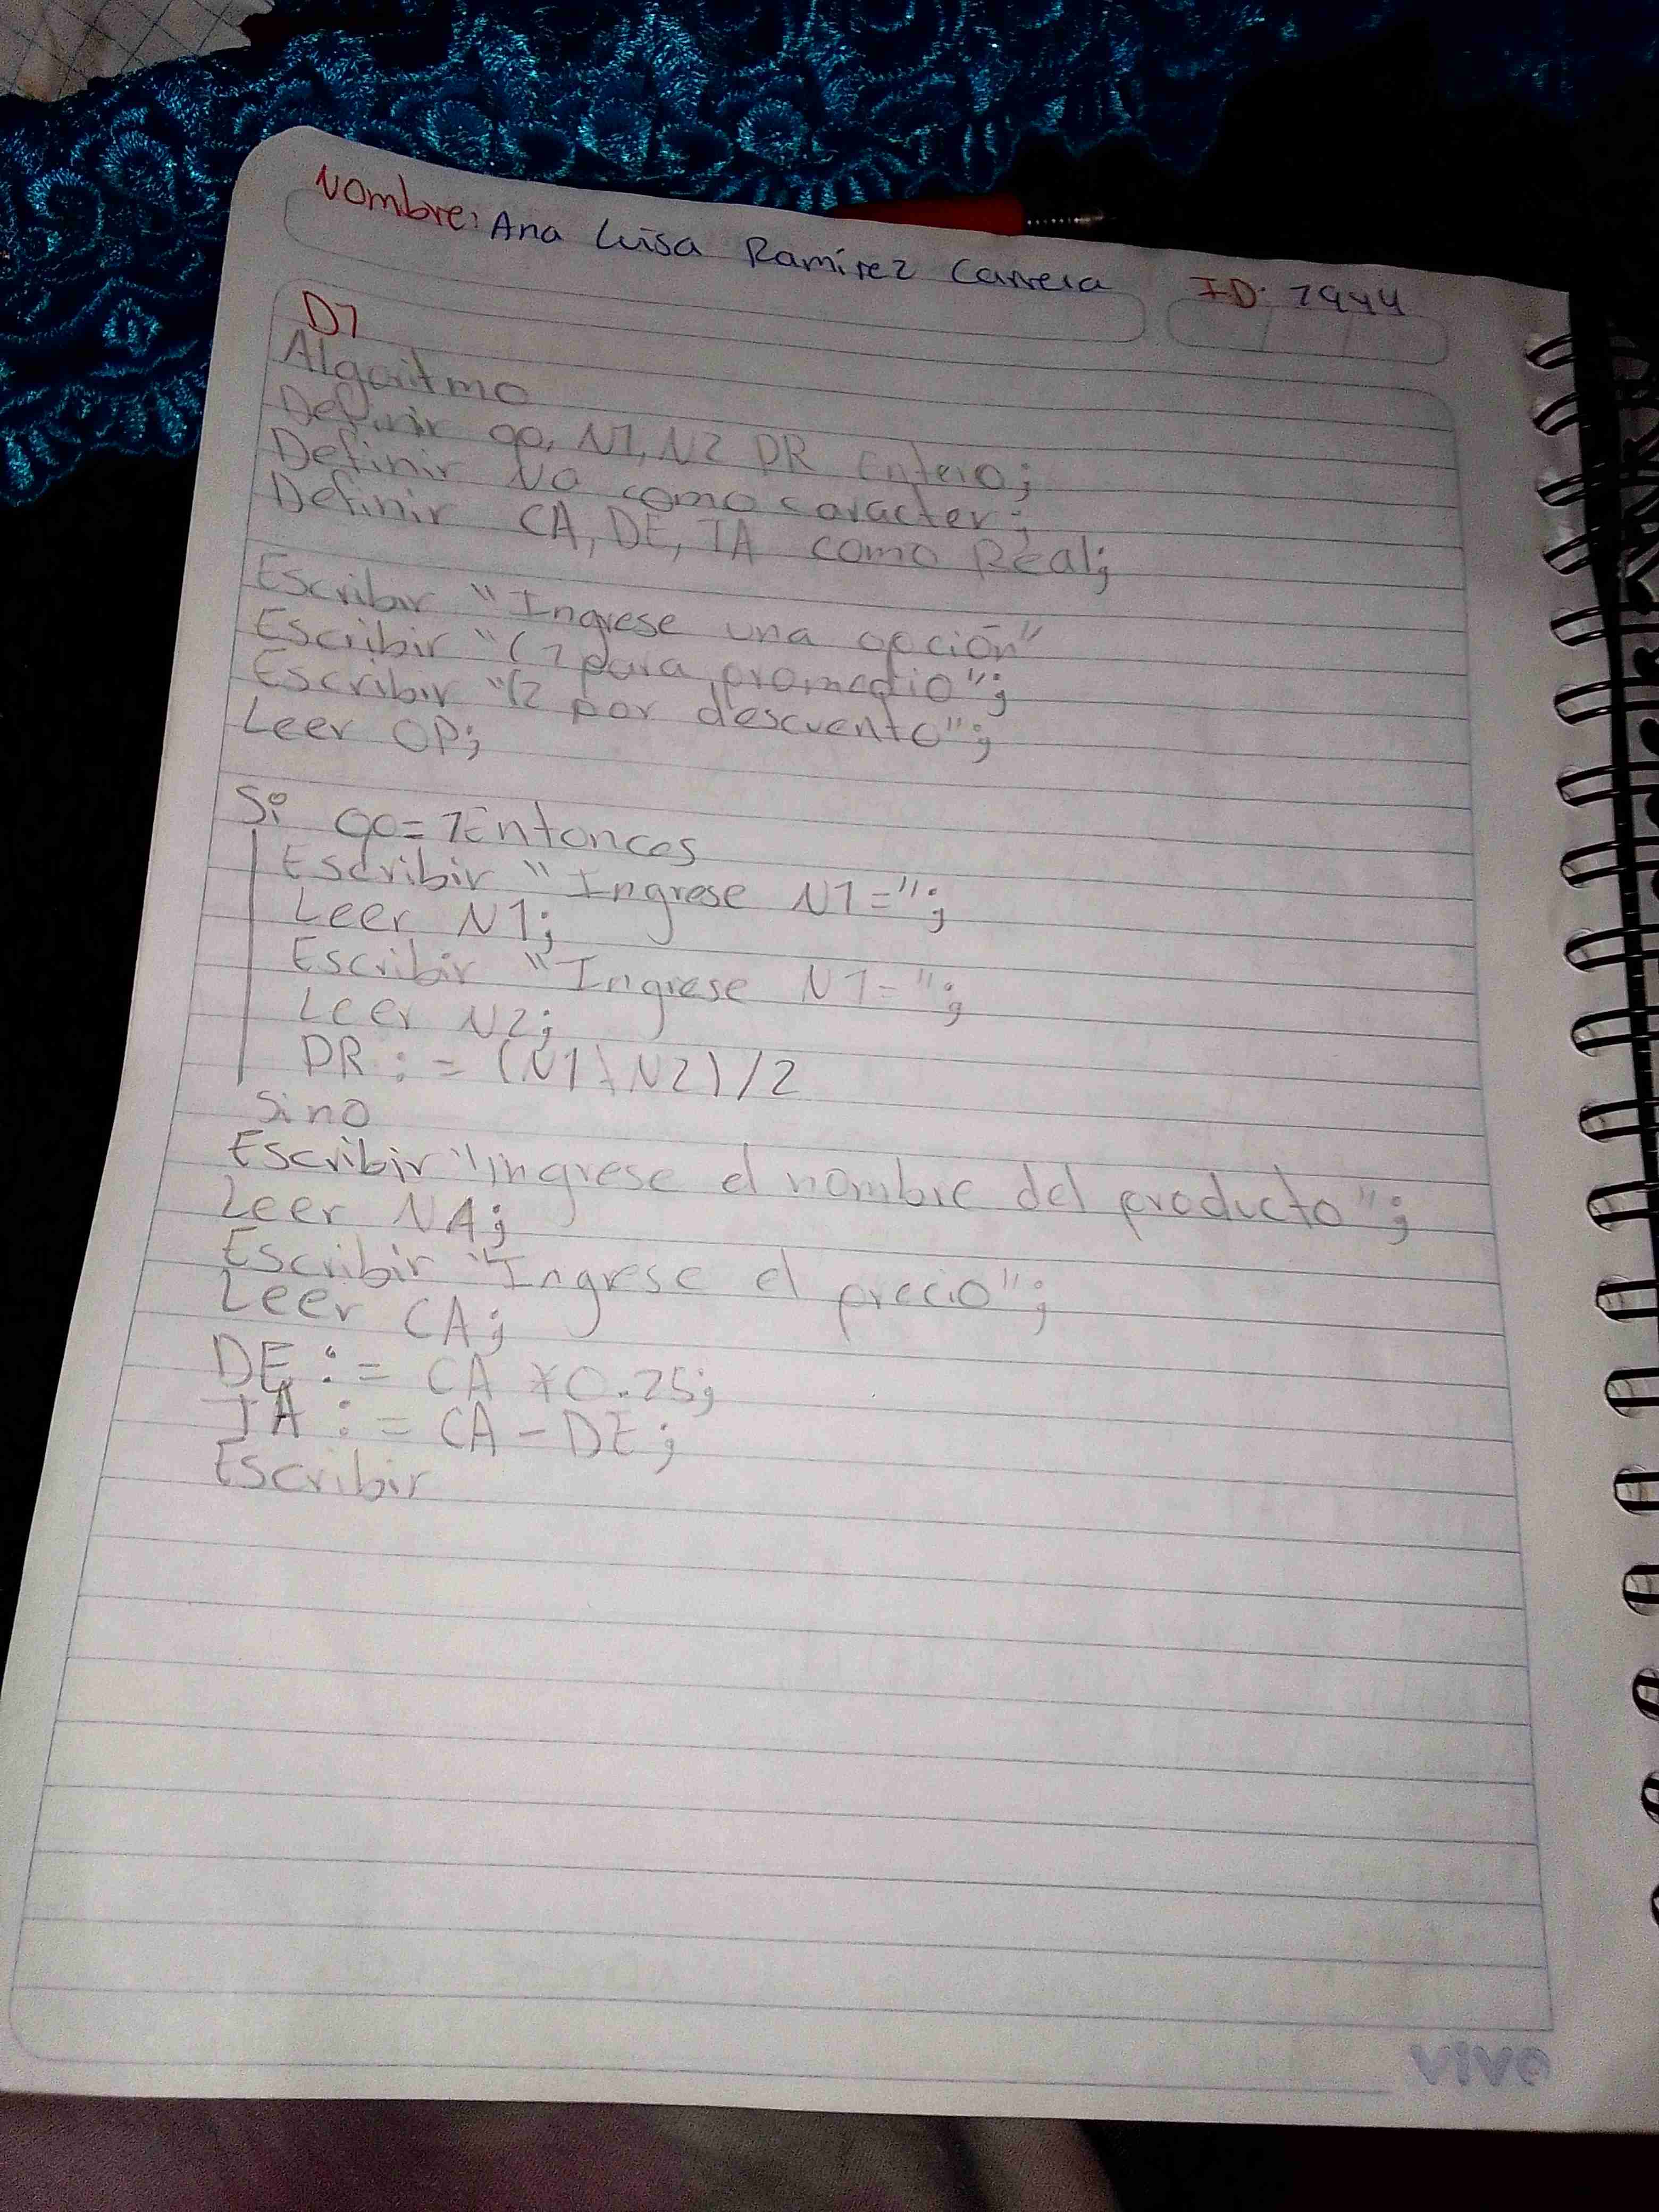 Nombre: Ana Luisa Ramírez Carrera ID: 1944
D1
Algoritmo
Definir op, N1, N2 DR Entero;
Definir NO como caracter;
Definir CA, DE, TA como Real;
Escribir "Ingrese una opción"
Escribir "(1 para promedio";
Escribir "(2 por descuento";
Leer OP;
Si op=1Entonces
Escribir "Ingrese N1=";
Leer N1;
Escribir "Ingrese N1=";
Leer N2;
DR := (N1\N2)/2
Sino
Escribir "ingrese el nombre del producto";
Leer NA;
Escribir "Ingrese el precio";
Leer CA;
DE := CA *0.25;
TA := CA - DE;
Escribir
vivo